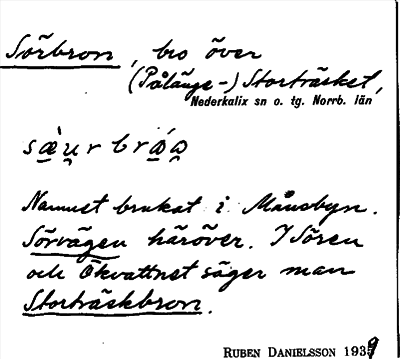 Sörbron, bro över
(Pålänge-) Storträsket,
Nederkalix sn o. tg. Norrb. län
sæ̀u̯r brɷ́ɷ̯
Namnet brukat i Månsbyn.
Sörvägen häröver. I Sören
och Ökvattnet säger man
Storträskbron.
RUBEN DANIELSSON 1939